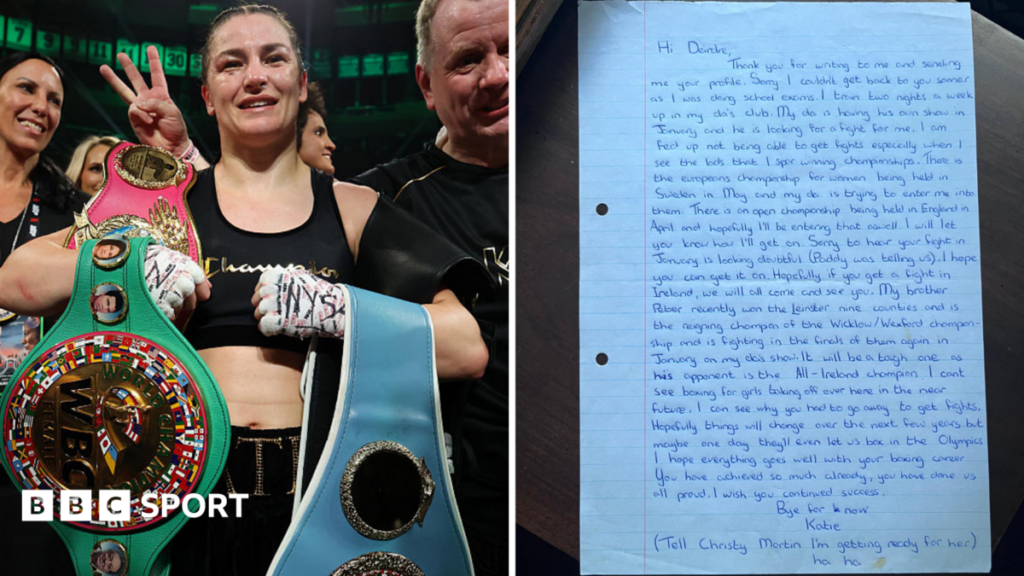 7 9 11 30
Champion
N
NYS
WORLD
WBC
FEMALE
KATI
BBC SPORT
Hi Deirdre,
Thank you for writing to me and sending
me your profile. Sorry I couldn't get back to you sooner
as I was doing school exams. I train two nights a week
up in my da's club. My da is having his own show in
January and he is looking for a fight for me. I am
fed up not being able to get fights especially when I
see the lads that I spar winning championships. There is
the europeans championship for women being held in
Sweden in May and my da is trying to enter me into
them. There is an open championship being held in England in
April and hopefully I'll be entering that aswell. I will let
you know how I'll get on. Sorry to hear your fight in
January is looking doubtful (Paddy was telling us). I hope
you can get it on. Hopefully if you get a fight in
Ireland, we will all come and see you. My brother
Peter recently won the Leinster nine counties and is
the reigning champion of the Wicklow/Wexford champion-
ship and is fighting in the finals of them again in
January on my da's show. It will be a tough one as
his opponent is the All-Ireland champion. I cant
see boxing for girls taking off over here in the near
future. I can see why you had to go away to get fights.
Hopefully things will change over the next few years but
maybe one day they'll even let us box in the Olympics
I hope everything goes well with your boxing career
You have achieved so much already, you have done us
all proud. I wish you continued success.
Bye for know
Katie
(Tell Christy Martin I'm getting ready for her)
ha ha